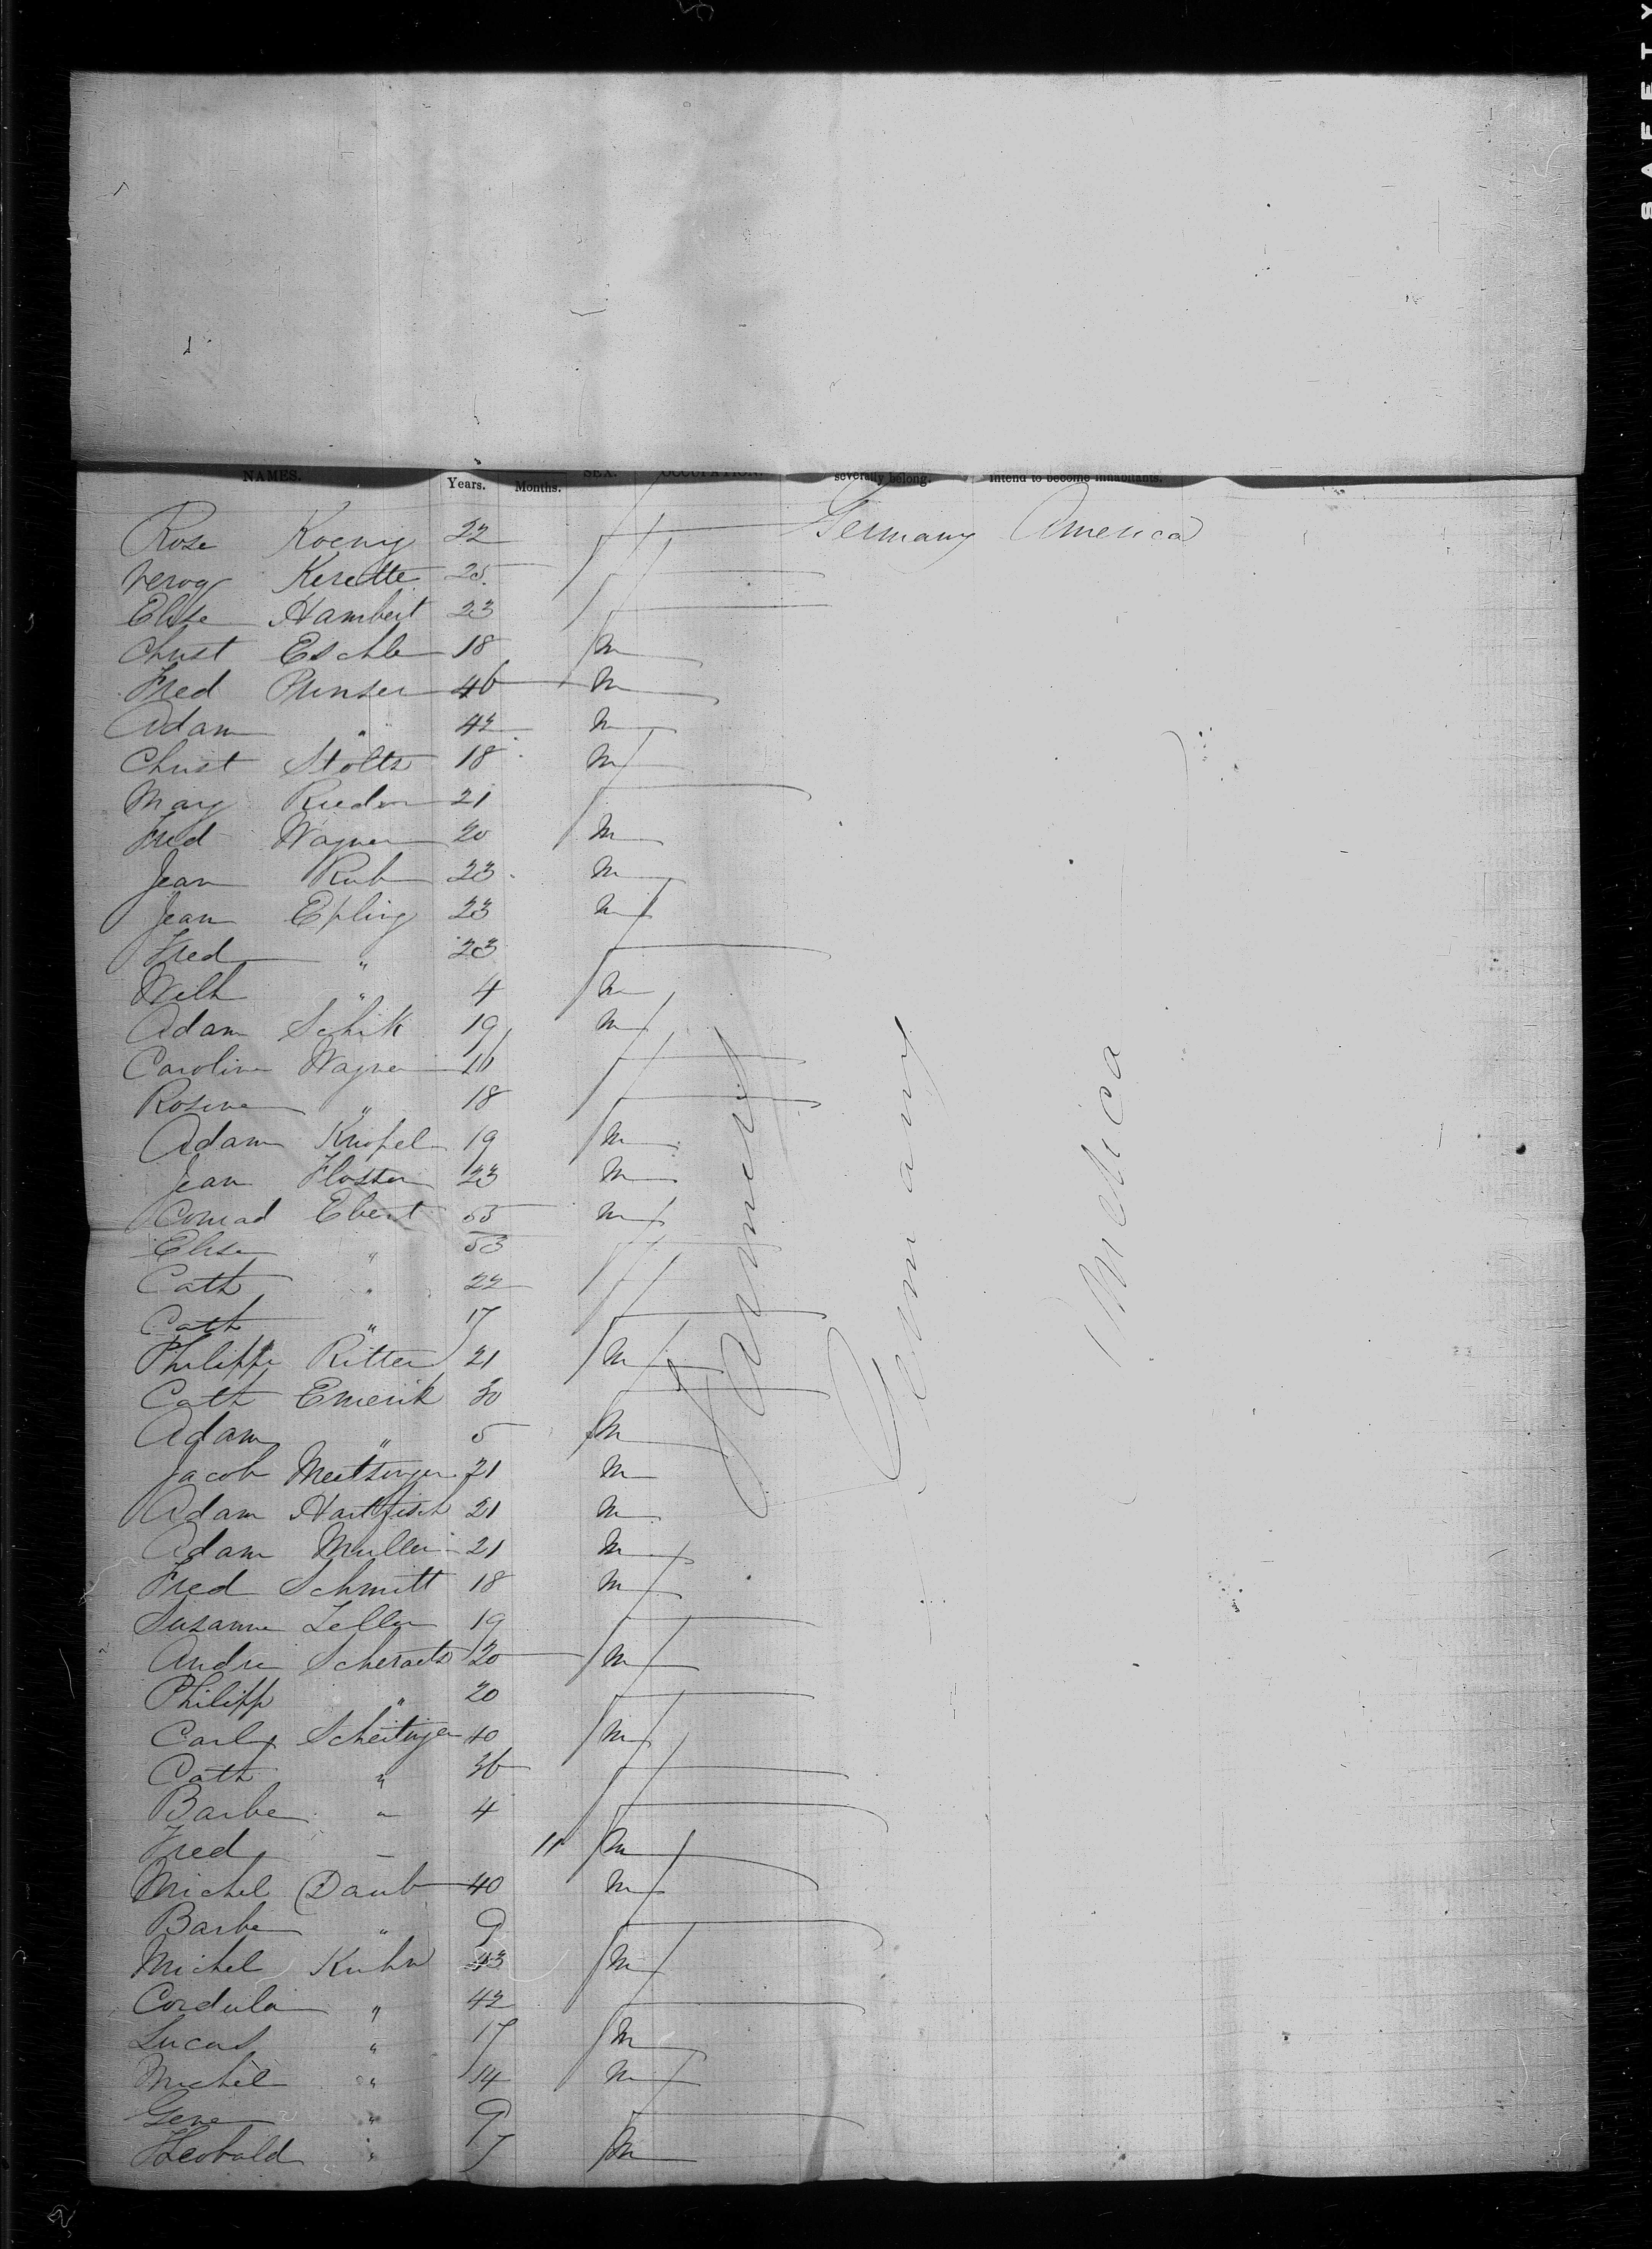 SAFETY
NAMES. Years. Months. SEX. OCCUPATION. severally belong. intend to become inhabitants.
Rose Koenig 22 f Germany America
Kerette 25 f
Elise Hambert 23 f
Christ Eschle 18 m
Fred Prinser 46 m
Adam " 42 m
Christ Stoltz 18 m
Mary Rieder 21 f
Fred Wagner 20 m
Jean Rub 23 m
Jean Epling 23 m
Fred " 23 f
Wilh " 4 m
Adam Schik 19 m
Caroline Wagner 16 f
Rosine " 18 f
Adam Knopel 19 m
Jean Flosser 23 m
Conrad Ebert 55 m
Elise " 53 f
Cath " 22 f
Cath " 17 f
Philippe Ritter 21 m
Cath Emerik 30 f
Adam " 5 m
Jacob Meetsinger 21 m
Adam Hartfisch 21 m
Adam Muller 21 m
Fred Schmitt 18 m
Susanne Zeller 19 f
Andre Scheraetz 20 m
Philipp " 20 f
Carl Scheitinger 40 m
Cath " 36 f
Barbe " 4 f
Fred " 11 m
Michel Daub 40 m
Barbe " 9 f
Michel Kuhn 43 m
Cordula " 42 f
Lucas " 17 m
Michel " 14 m
Gene " 9 f
Theobald " 7 m
Farmers
Germany
America